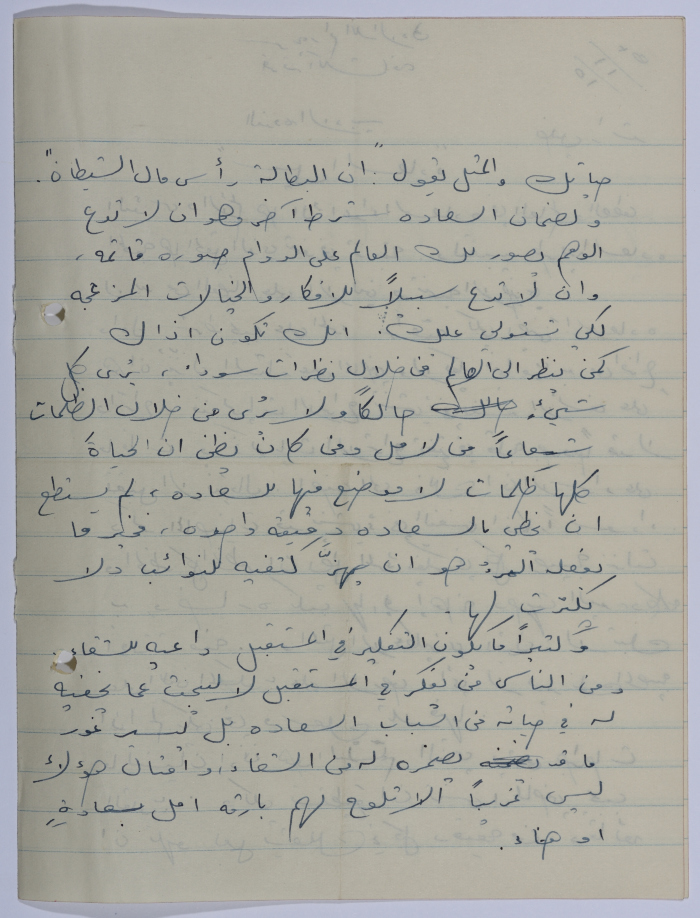 حياتك والمثل يقول: "ان البطالة رأس مال الشيطان".
ولضمان السعاده شرط آخر وهو ان لا تدع
الوهم يصور لك العالم على الدوام صوره قاتمه،
وان لا تدع سبيلاً للافكار والخيالات المزعجه
لكي تستولي عليك. انك تكون اذ ذاك
كمن ينظر الى العالم من خلال نظرات سوداء، يرى كل
شيء حالكاً ولا يرى من خلال الظلمات
شعاعاً من لامل ومن كان يظن ان الحياةَ
كلها ظلمات لا موضع فيها للسعاده، لم يستطع
ان يحظى بالسعاده دقيقه واحده، فخير ما
يفعله المرء هو ان يهزَّ كتفيه للنوائب ولا
يكترث لها.
وكثيراً ما يكون التفكير في المستقبل داعيه للشقاء.
ومن الناس من يفكر في المستقبل لا ليبحث عما يخفيه
له في حياته من اسباب السعاده بل ليسبر غور
ما قد يضمره له من الشقاء، وامثال هؤلاء
ليس غريباً الا تلوح لهم بارقه امل بسعادةٍ
او هناء.